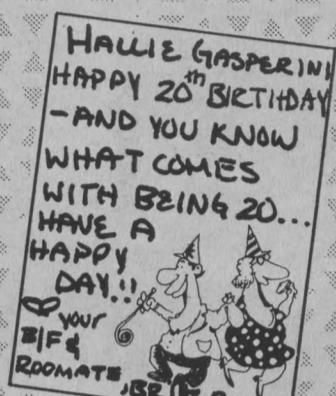 HALLIE GASPERINI
HAPPY 20th BIRTHDAY
-AND YOU KNOW
WHAT COMES
WITH BEING 20...
HAVE A
HAPPY
DAY!!
YOUR
B/F &
ROOMATE,